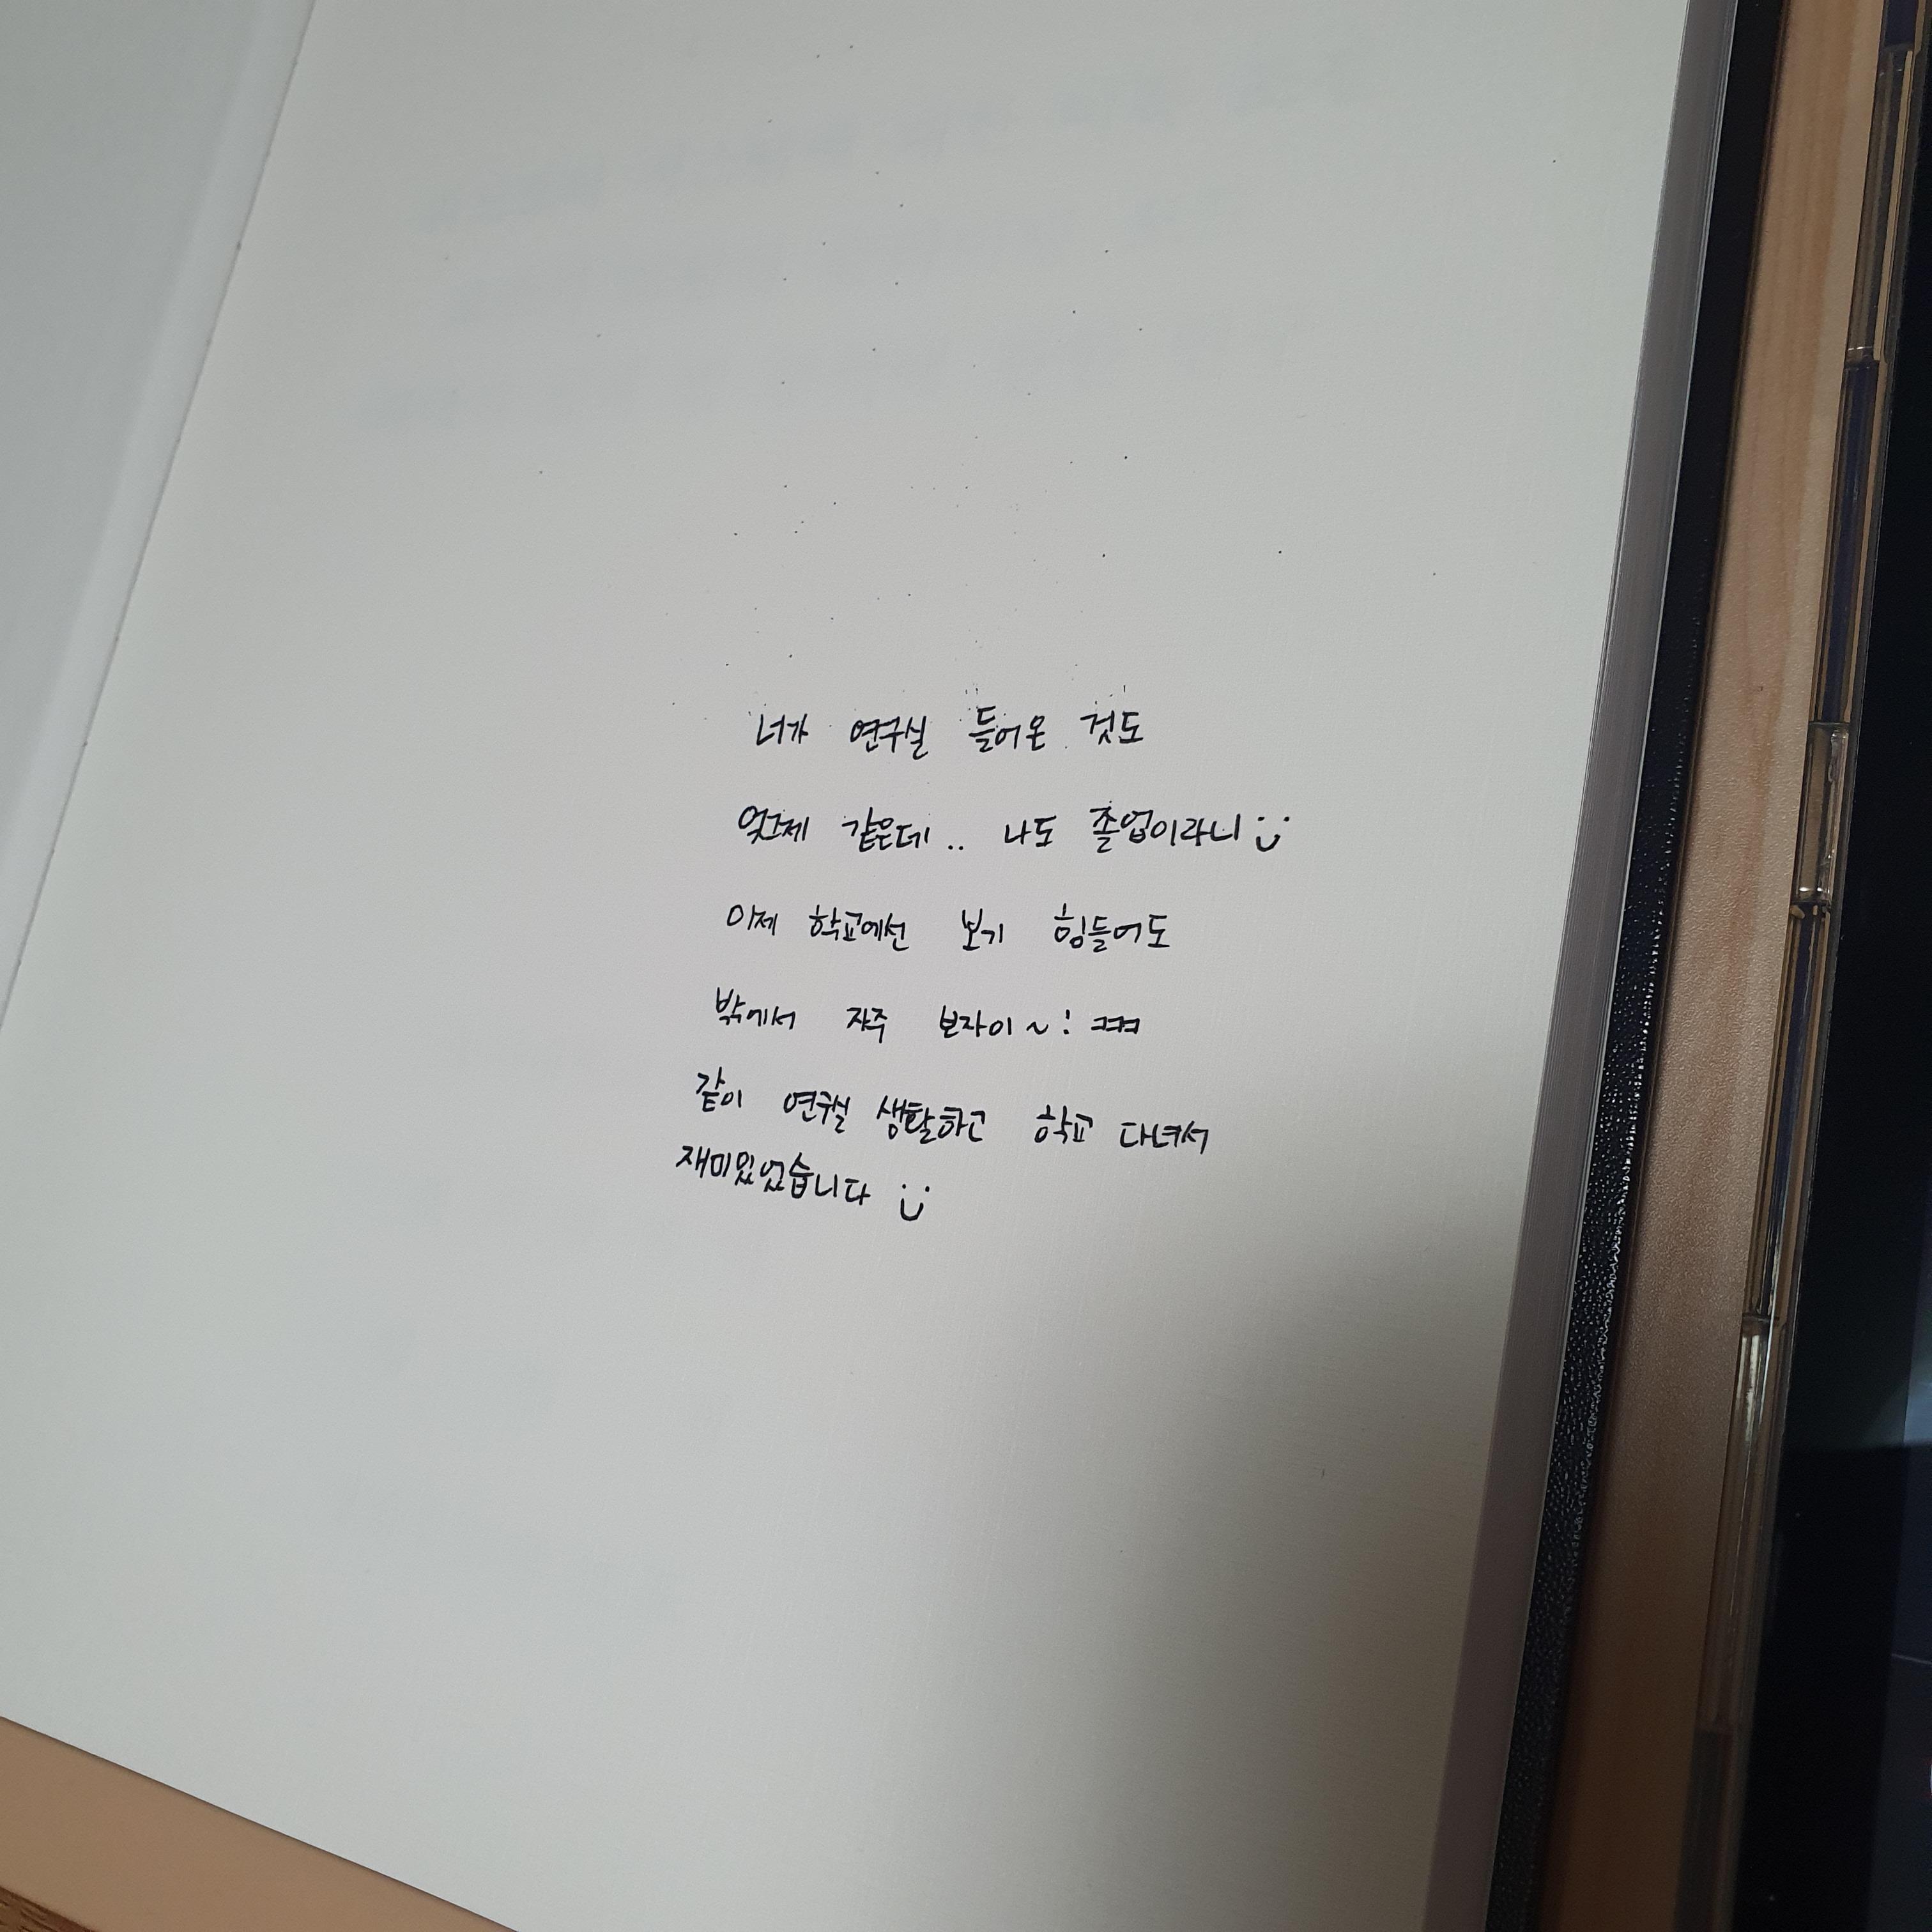 너가 연구실 들어온 것도
엊그제 같은데.. 나도 졸업이라니 :)
이제 학교에선 보기 힘들어도
밖에서 자주 보자이~! ㅋㅋㅋ
같이 연구실 생활하고 학교 다녀서
재미있었습니다 :)